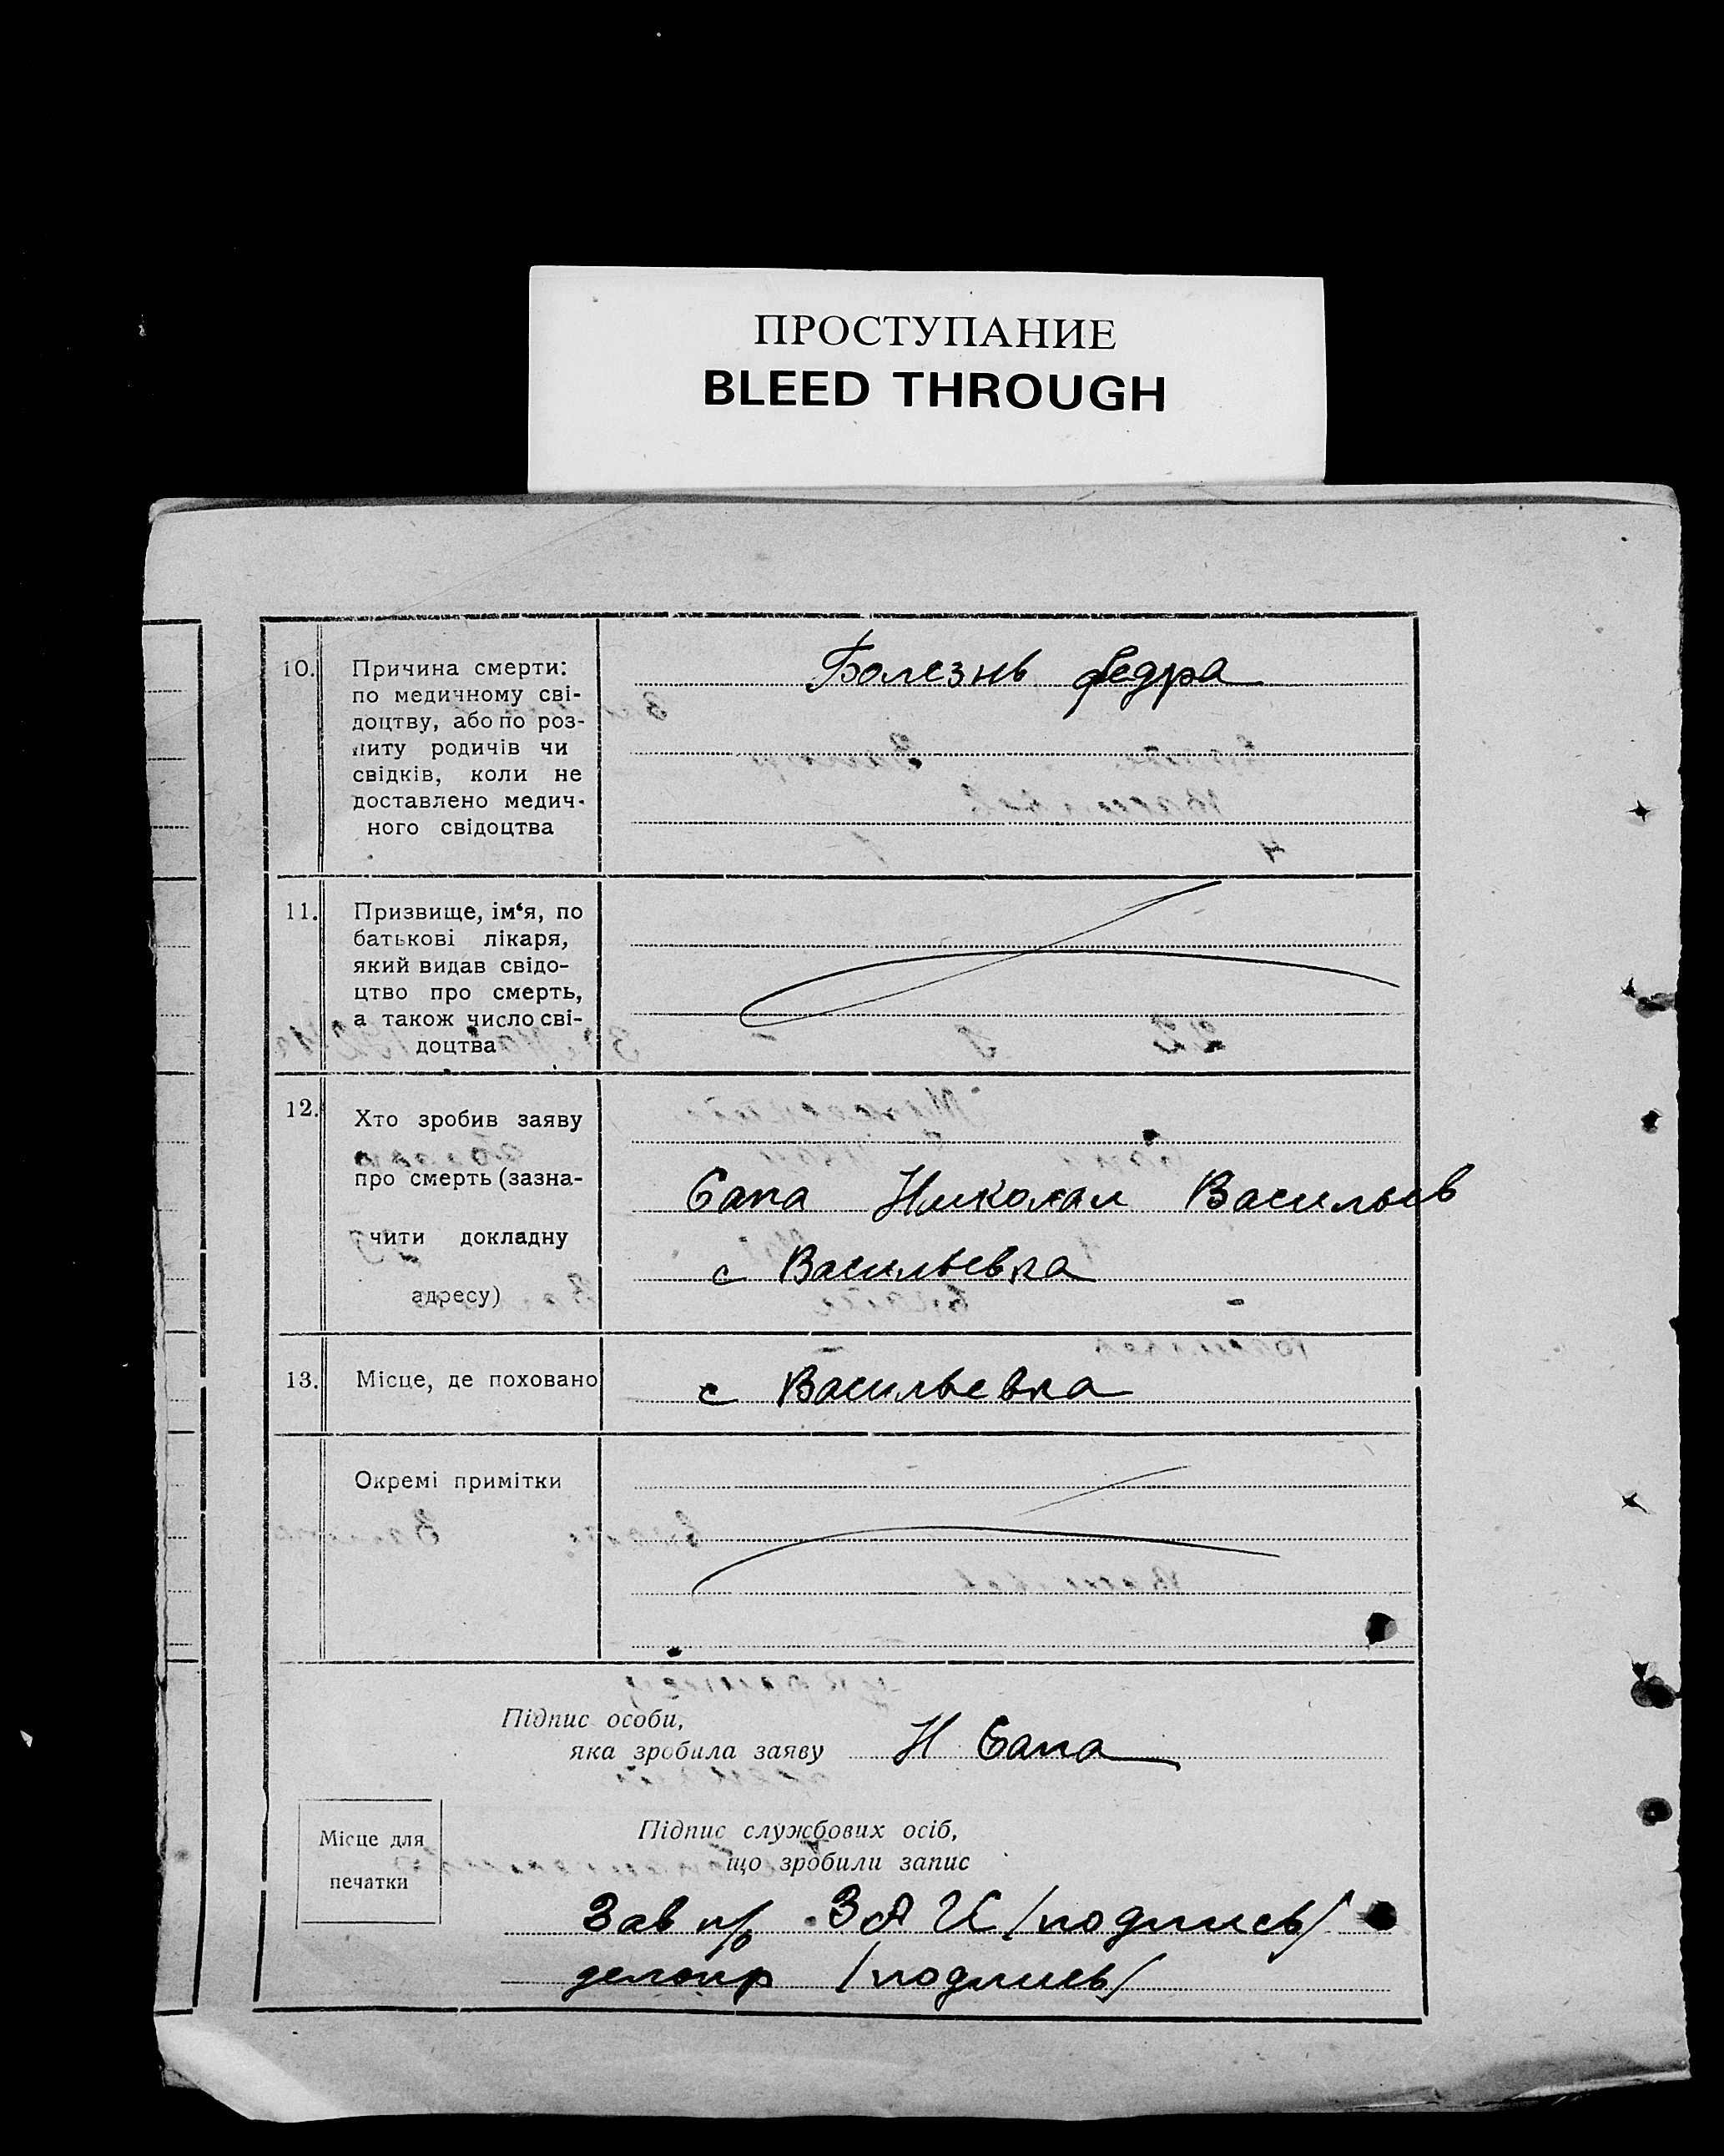 ПРОСТУПАНИЕ
BLEED THROUGH
10. Причина смерти:
по медичному сві-
доцтву, або по роз-
питу родичів чи
свідків, коли не
доставлено медич-
ного свідоцтва
Болезнь бедра
11. Призвище, ім‘я, по
батькові лікаря,
який видав свідо-
цтво про смерть,
а також число сві-
доцтва
12. Хто зробив заяву
про смерть (зазна-
чити докладну
адресу)
Сапа Николай Васильев
с Васильевка
13. Місце, де поховано
с Васильевка
Окремі примітки
Підпис особи,
яка зробила заяву Н Сапа
Місце для
печатки
Підпис службових осіб,
що зробили запис
Зав п/о /подпись/
делопр /подпись/